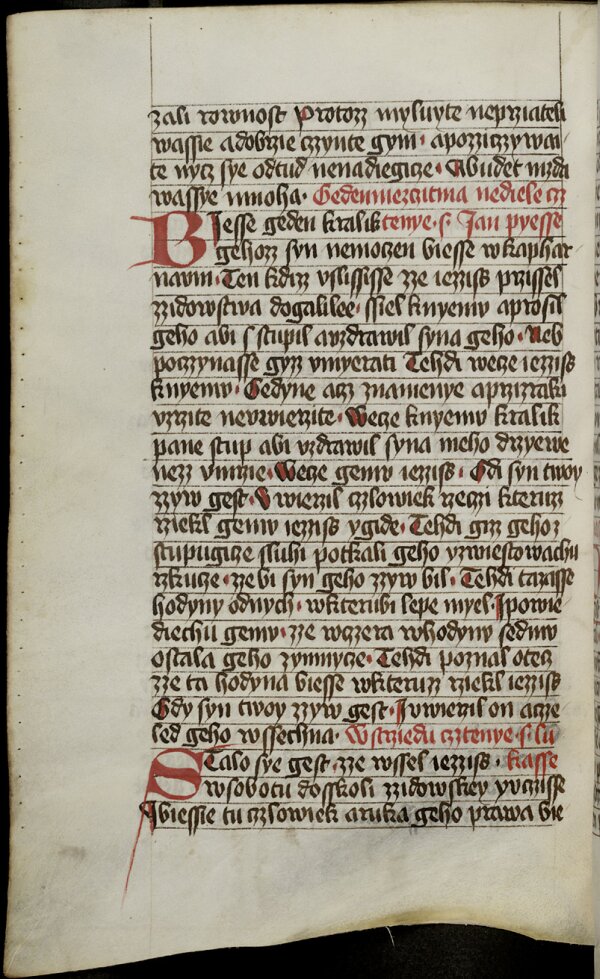 zali rownost Protozz myluyte neprziateli
wassie adobrzie czzynte gym · apozziczzywai
te nycz sye odtud nenadiegicze · Abudet mzda
wassye mnoha · Gedenmezcitma nediele cz
Biesse geden kralik tenye · s · Jan pyesse
gehozz syn nemoczen biesse wkaphar
naum · Ten kdizz vslississe zze iezziss przissel
zzidowstwa dogalilee · ssiel knyemv aprosil
geho abi sstupil avzdrawil syna geho · Neb
poczzynasse gyzz vmyerati Tehdi wecze iezziss
knyemv · Gedyne acz znamenye aprziraki
vzrzite nevwierzite · Wecze knyemv kralik
pane stup abi vzdrawil syna meho drzyewe
nezz vmrzie · Wecze gemv iezziss · Gdi syn twoy
zzyw gest · Vwierzil czlowiek rzeczi kteruzz
rziekl gemv iezziss ygide · Tehdi gizz gehoz
stupugicze sluhi potkali geho yzwiestowachu
rzkucze · zebi syn geho zzyw bil · Tehdi tazasse
hodyny odnych · wkterubi lepe myel · Ipowie
diechu gemv · zze wczera whodynv sedmv
ostala geho zymnycze · Tehdi poznal otecz
zze ta hodyna biesse wkteruzz rziekl iezziss
Gdy syn twoy zzyw gest · Ivwierzil on acze
led geho wssechna · Wstrziedu cztenye · s · lu
Stalo sye gest · zze wssel iezziss · kasse
wsobotu dosskoli zzidowskey yvczisse
Abiessie tu czlowiek aruka geho prawa bie